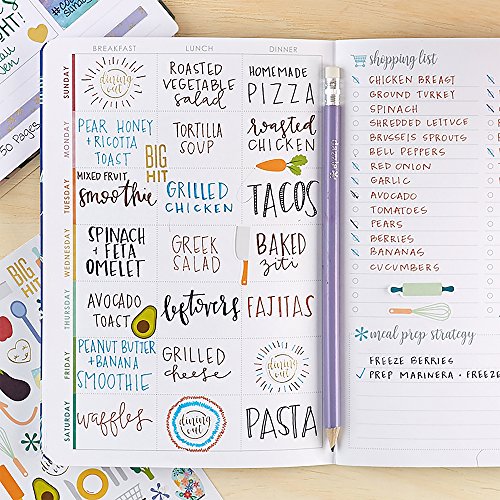 50 Pages
BREAKFAST LUNCH DINNER
SUNDAY
dining out
ROASTED
VEGETABLE
salad
HOMEMADE
PIZZA
MONDAY
PEAR HONEY
+ RICOTTA
TOAST
BIG
HIT
TORTILLA
SOUP
roasted
CHICKEN
TUESDAY
MIXED FRUIT
smoothie
GRILLED
CHICKEN
TACOS
WEDNESDAY
SPINACH
+ FETA
OMELET
GREEK
SALAD
BAKED
ziti
THURSDAY
AVOCADO
TOAST
leftovers
FAJITAS
FRIDAY
PEANUT BUTTER
+ BANANA
SMOOTHIE
GRILLED
cheese
dining out
SATURDAY
waffles
dining out
PASTA
shopping list
CHICKEN BREAST
GROUND TURKEY
SPINACH
SHREDDED LETTUCE
BRUSSEIS SPROUTS
BELL PEPPERS
RED ONION
GARLIC
AVOCADO
TOMATOES
PEARS
BERRIES
BANANAS
CUCUMBERS
meal prep strategy
FREEZE BERRIES
PREP MARINERA + FREEZE
BIG
HIT